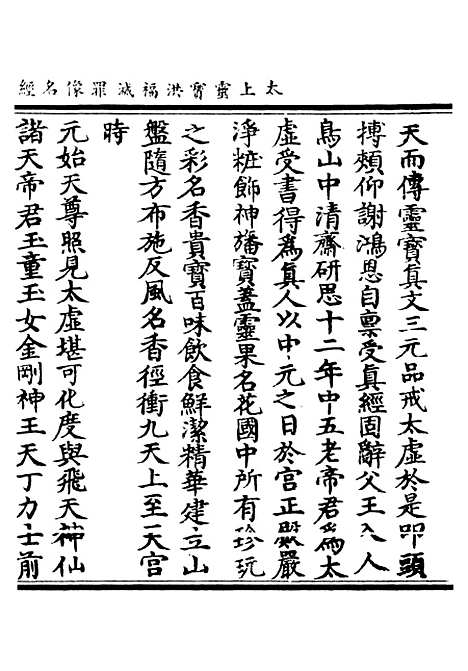 太上靈寳洪福滅罪像名經
天而傳靈寳真文三元品戒太虛於是叩頭
搏頰仰謝鴻恩自禀受真經固辭父王入人
鳥山中清齋研思十二年中五老帝君為太
虛受書得為真人以中元之日於宫正嚴
淨粧飾神旛寳蓋靈果名花國中所有珍玩
之彩名香貴寳百味飲食鮮潔精華建立山
盤隨方布施反風名香徑衝九天上至一天宫
時
元始天尊照見太虛堪可化度與飛天神仙
諸天帝君玉童玉女金剛神王天丁力士前